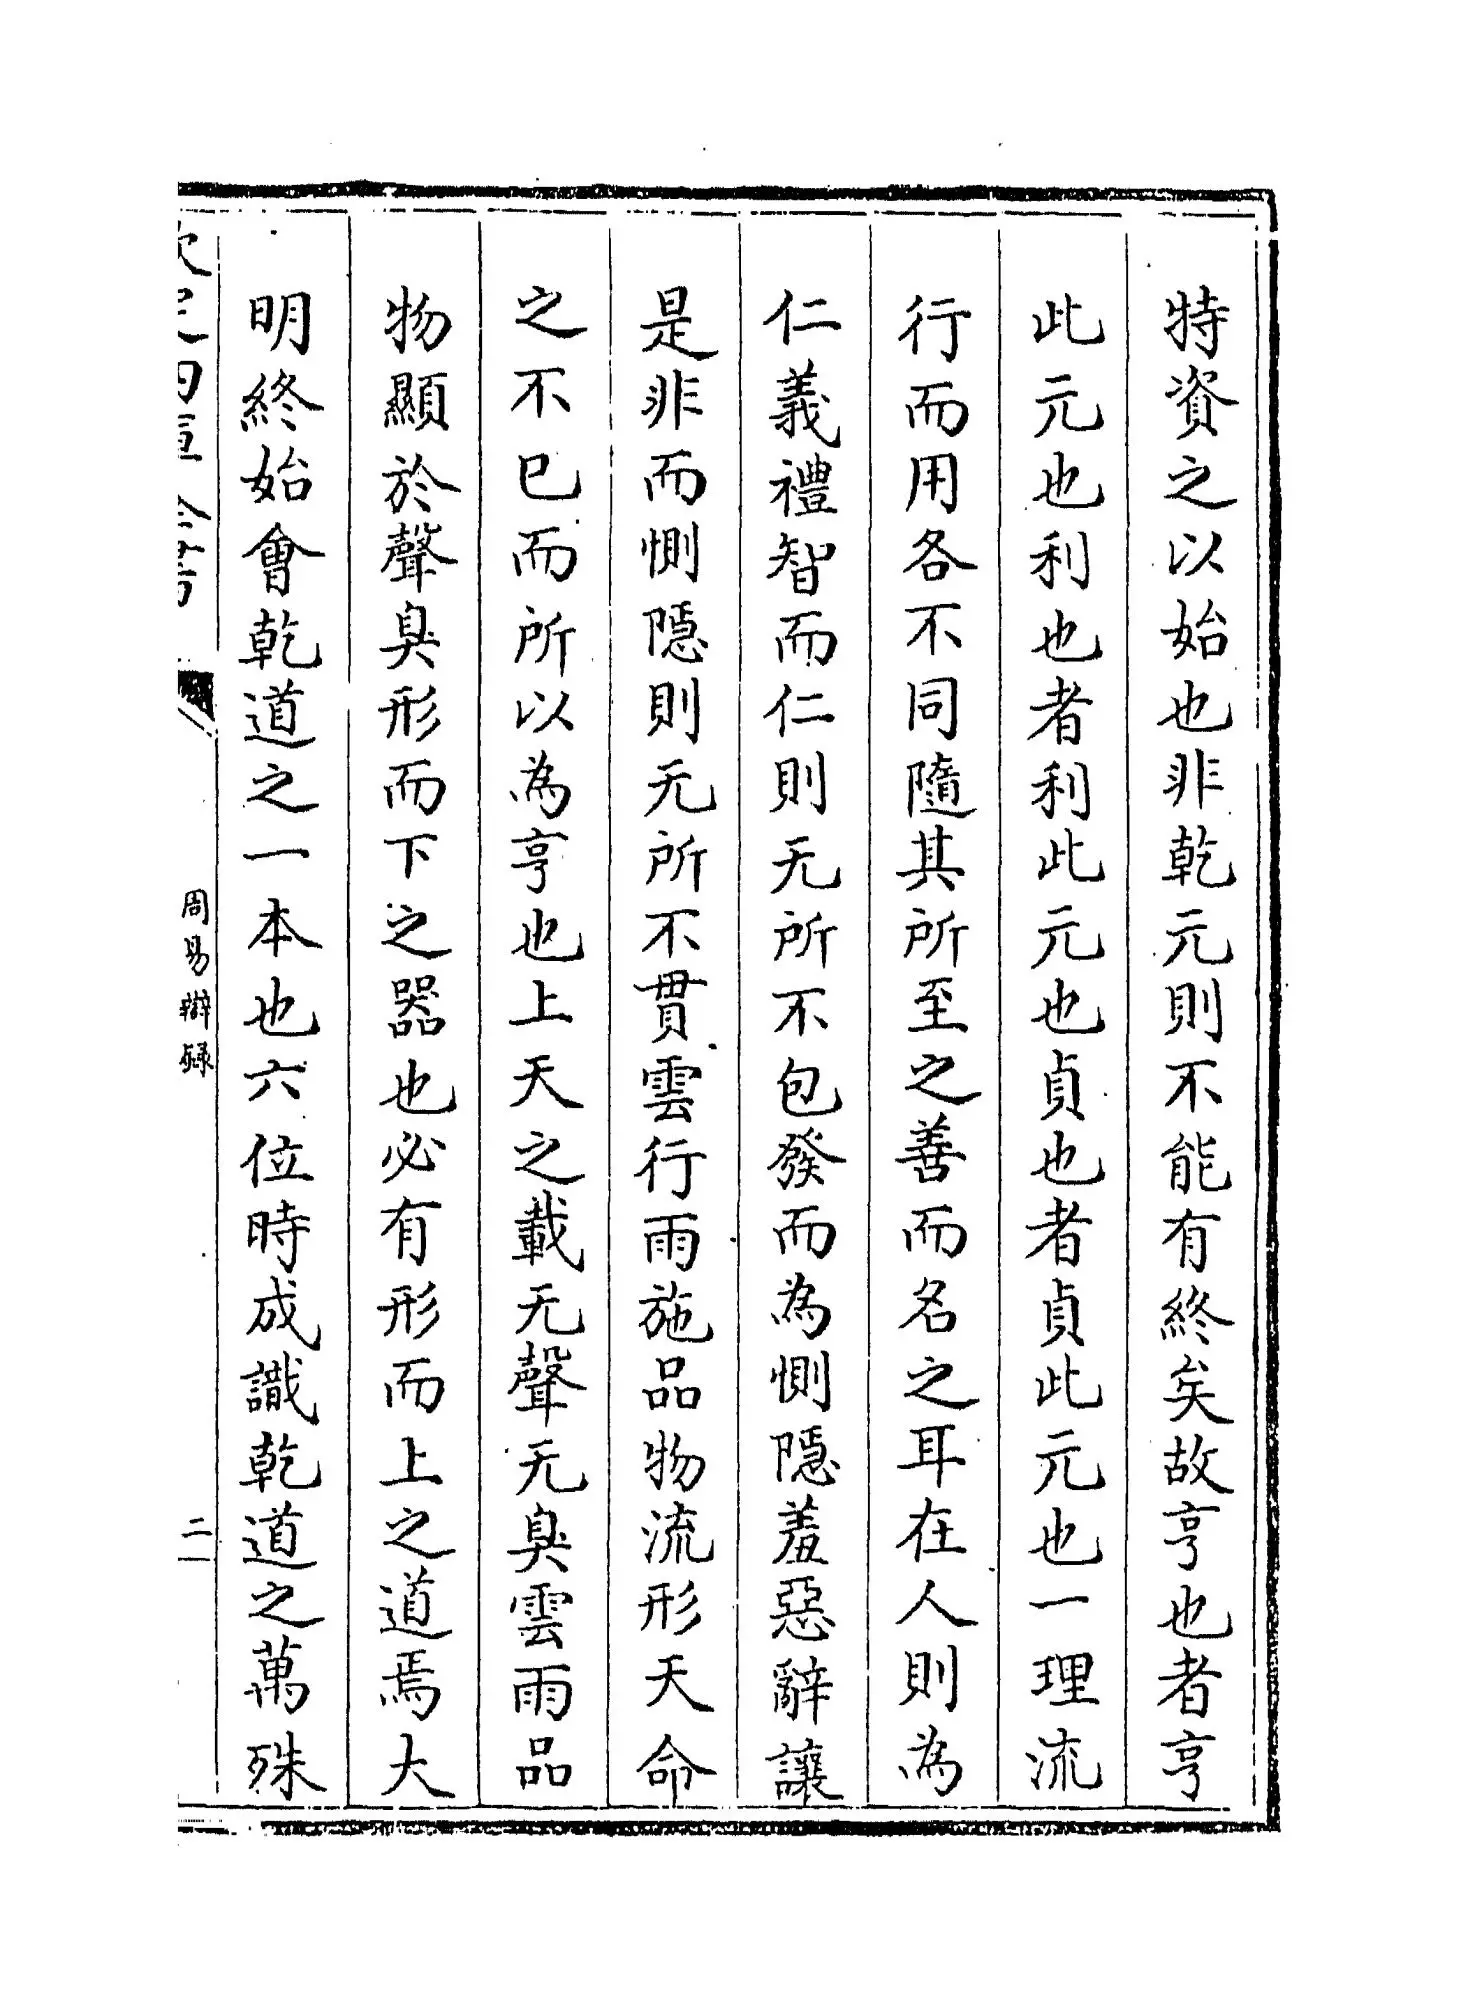 特資之以始也非乾元則不能有終矣故亨也者亨
此元也利也者利此元也貞也者貞此元也一理流
行而用各不同隨其所至之善而名之耳在人則為
仁義禮智而仁則无所不包發而為惻隠羞惡辭讓
是非而惻隠則无所不貫雲行雨施品物流形天命
之不已而所以為亨也上天之載无聲无臭雲雨品
物顯於聲臭形而下之器也必有形而上之道焉大
明終始會乾道之一本也六位時成識乾道之萬殊
周易辯録
二